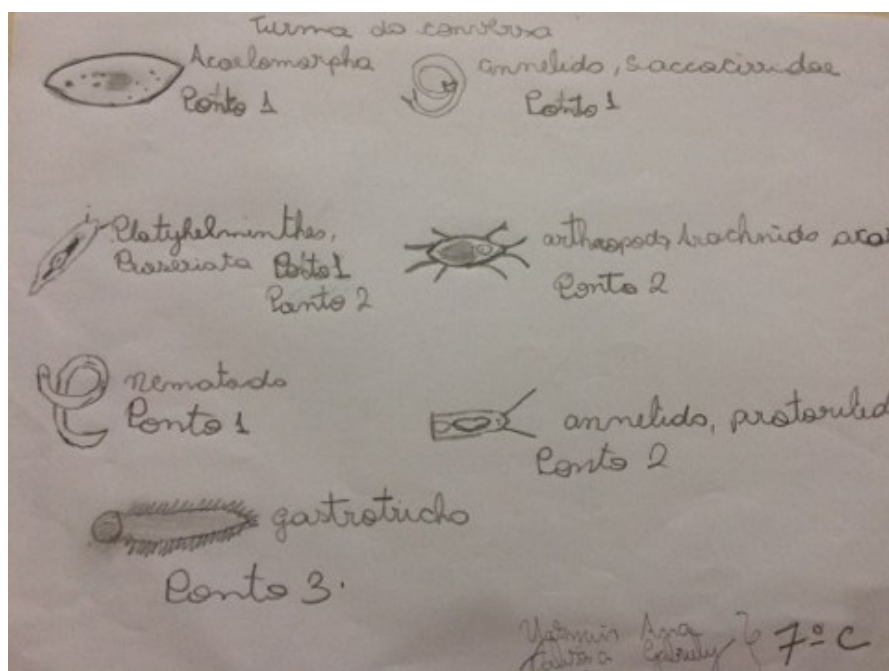 Turma da conversa
Acoelomorpha
Ponto 1
annelida, Saccocirridae
Ponto 1
Platyhelminthes,
Proseriata Ponto 1
Ponto 2
arthropoda, arachnida acar
Ponto 2
nematoda
Ponto 1
annelida, protodriled
Ponto 2
gastrotricha
Ponto 3.
Yasmin Ana
7º C